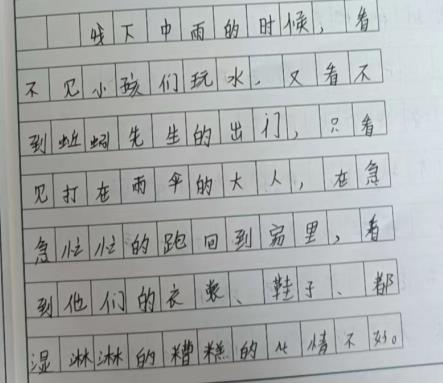 线下中雨的时候，看
不见小孩们玩水，又看不
到蚯蚓先生的出门，只看
见打在雨伞的大人，在急
急忙忙的跑回到窝里，看
到他们的衣裳、鞋子、都
湿淋淋的糟糕的心情不好。